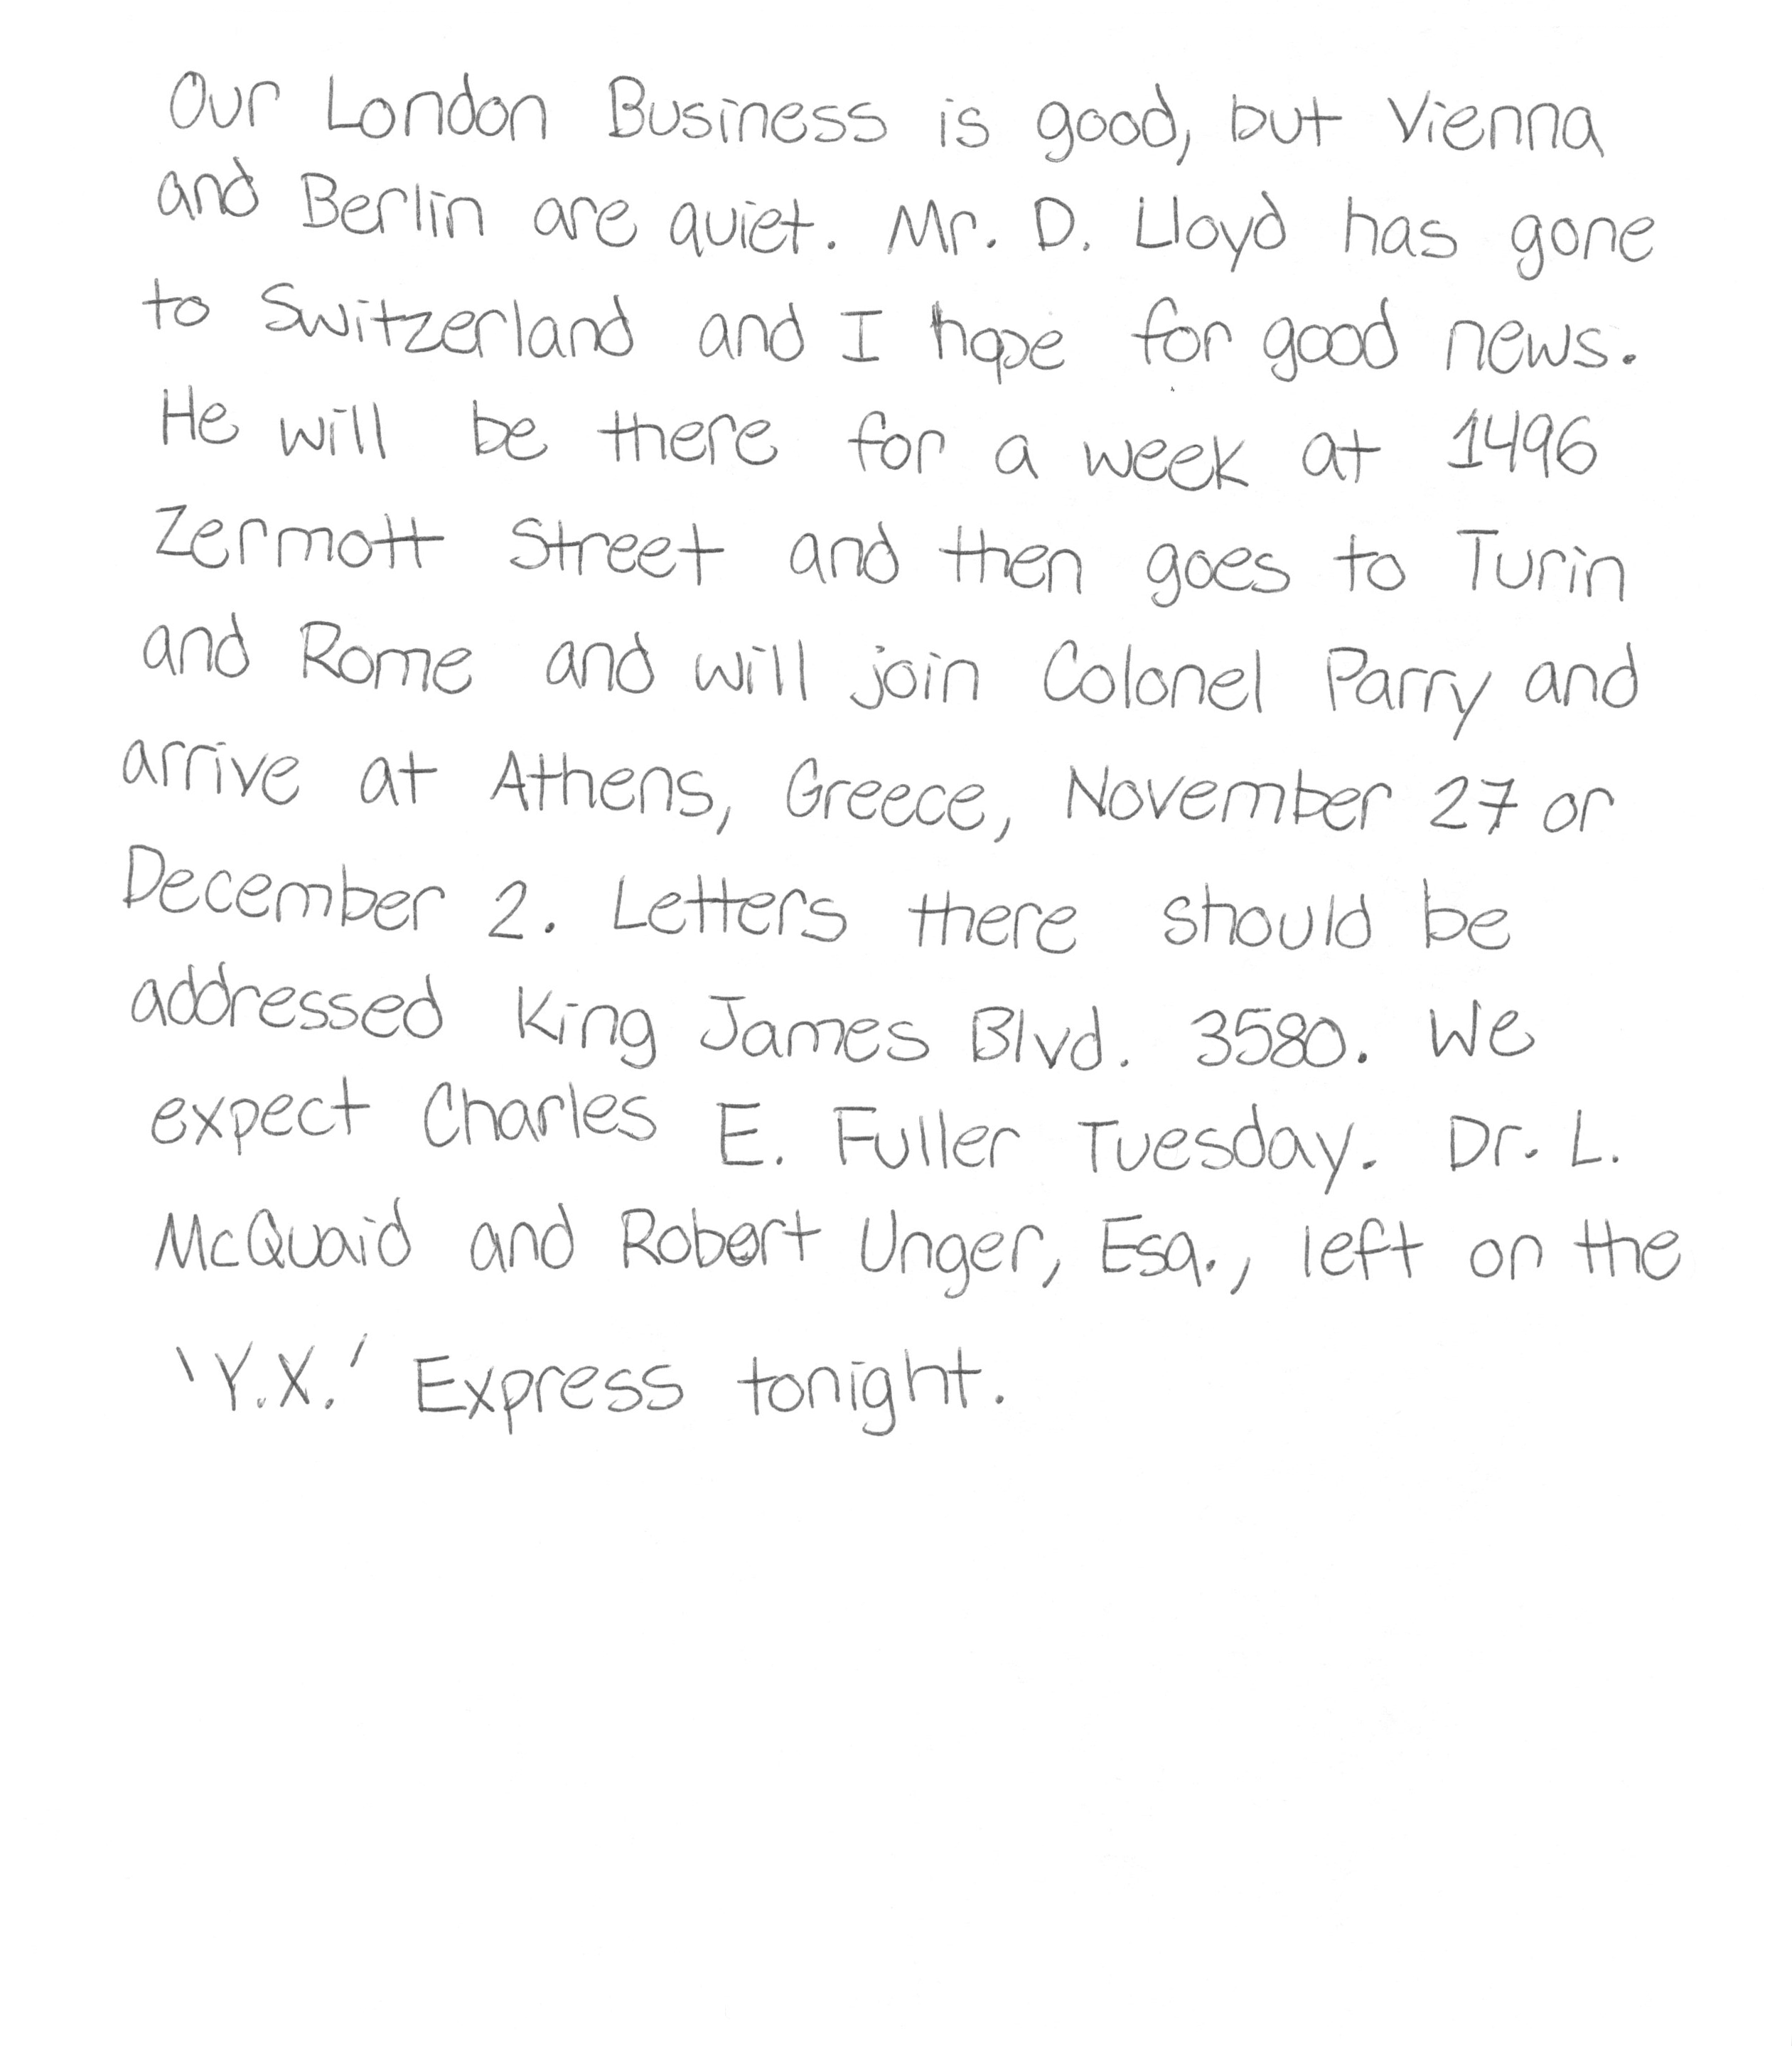 Our London Business is good, but Vienna
and Berlin are quiet. Mr. D. Lloyd has gone
to Switzerland and I hope for good news.
He will be there for a week at 1496
Zermott Street and then goes to Turin
and Rome and will join Colonel Parry and
arrive at Athens, Greece, November 27 or
December 2. Letters there should be
addressed King James Blvd. 3580. We
expect Charles E. Fuller Tuesday. Dr. L.
McQuaid and Robert Unger, Esq., left on the
'Y.X.' Express tonight.